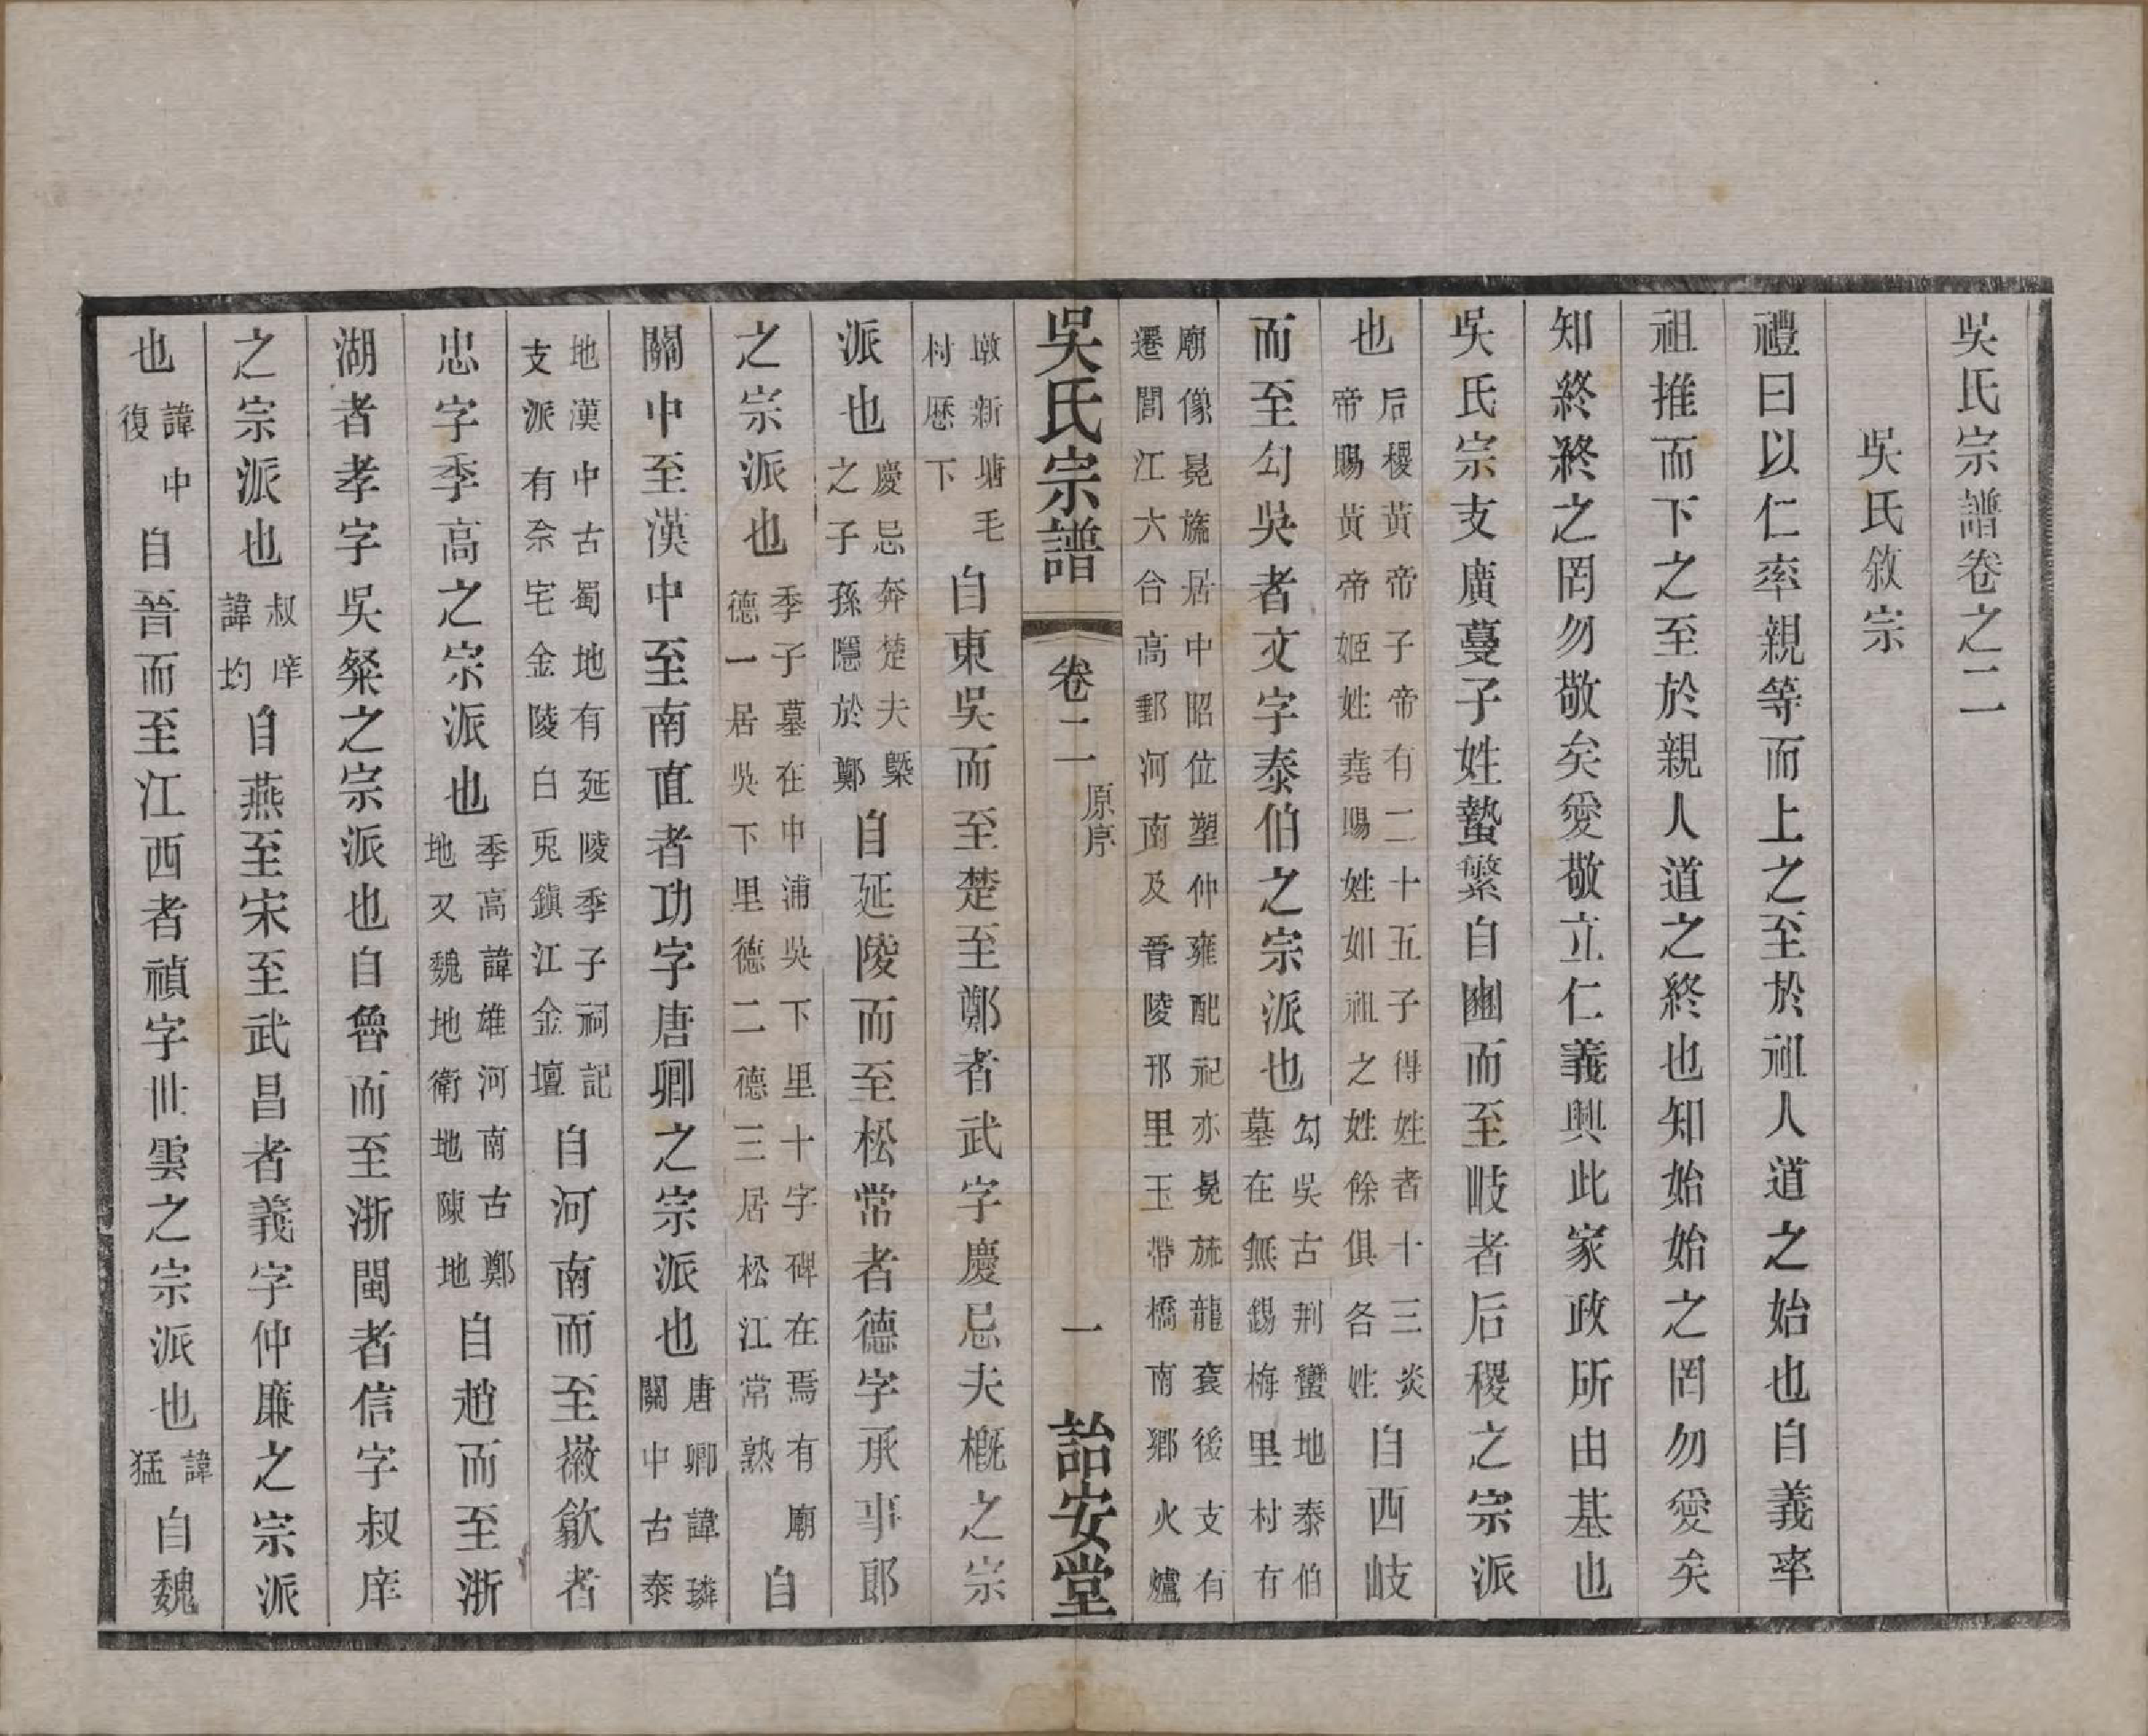 吳氏宗譜卷之二
吳氏敘宗
禮曰以仁率親等而上之至於祖人道之始也自義率
祖推而下之至於親人道之終也知始始之罔勿愛矣
知終終之罔勿敬矣愛敬立仁義興此家政所由基也
吳氏宗支廣蔓子姓蟄繁自豳而至岐者后稷之宗派
也后稷黃帝子帝有二十五子得姓者十三炎帝賜黃帝姬姓堯賜姓如祖之姓餘俱各姓自西岐
而至勾吳者文字泰伯之宗派也勾吳古荆蠻地泰伯墓在無錫梅里村有
廟像冕旒居中昭位塑仲雍配祀亦冕旒龍袞後支有遷閶江大台高郵河南及晉陵邗里玉帶橋南鄉火爐
吳氏宗譜 卷二 原序 一 詒安堂
墩新塘毛村歷下自東吳而至楚至鄭者武字慶忌夫概之宗
派也慶忌奔楚夫槩之子孫隱於鄭自延陵而至松常者德字承事郎
之宗派也季子墓在申浦吳下里十字碑在焉有廟德一居吳下里德二德三居松江常熟自
關中至漢中至南直者功字唐卿之宗派也唐卿諱璘關中古泰
地漢中古蜀地有延陵季子祠記支派有奈宅金陵白兎鎭江金壇自河南而至徽歙者
忠字季高之宗派也季高諱雄河南古鄭地又魏地衛地陳地自趙而至浙
湖者孝字吳粲之宗派也自魯而至浙閩者信字叔庠
之宗派也叔庠諱均自燕至宋至武昌者義字仲廉之宗派
也諱中復自晉而至江西者禎字世雲之宗派也諱猛自魏